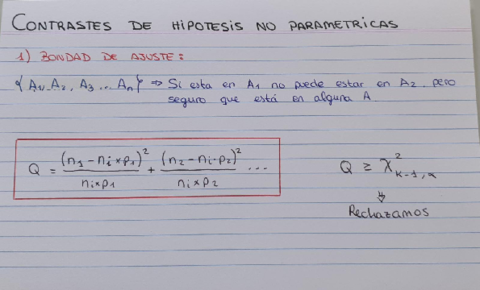 CONTRASTES DE HIPOTESIS NO PARAMETRICAS
1) BONDAD DE AJUSTE:
{A1, A2, A3 ... An} ⇒ Si esta en A1 no puede estar en A2, pero
seguro que está en alguna A
Q = (n1 - ni × p1)² / (ni × p1) + (n2 - ni · p2)² / (ni × p2) ...
Q ≥ χ²k-1,α
⇓
Rechazamos